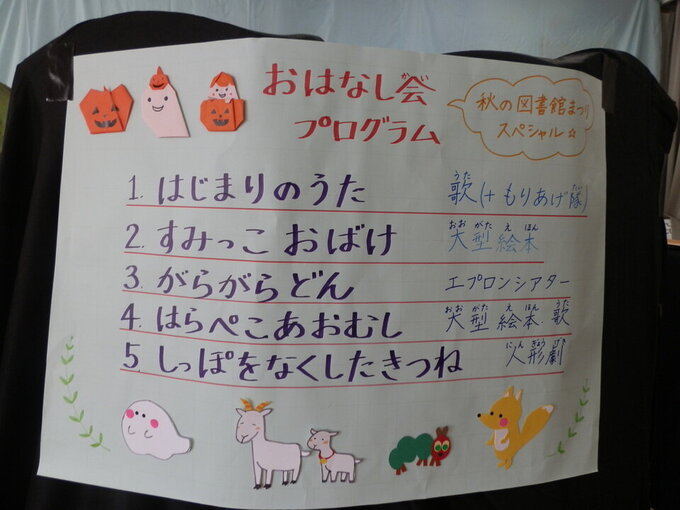 おはなし会
プログラム
秋の図書館まつり
スペシャル☆
1. はじまりのうた 歌(+もりあげ隊)
2. すみっこ おばけ 大型絵本
3. がらがらどん エプロンシアター
4. はらぺこあおむし 大型絵本・歌
5. しっぽをなくしたきつね 人形劇